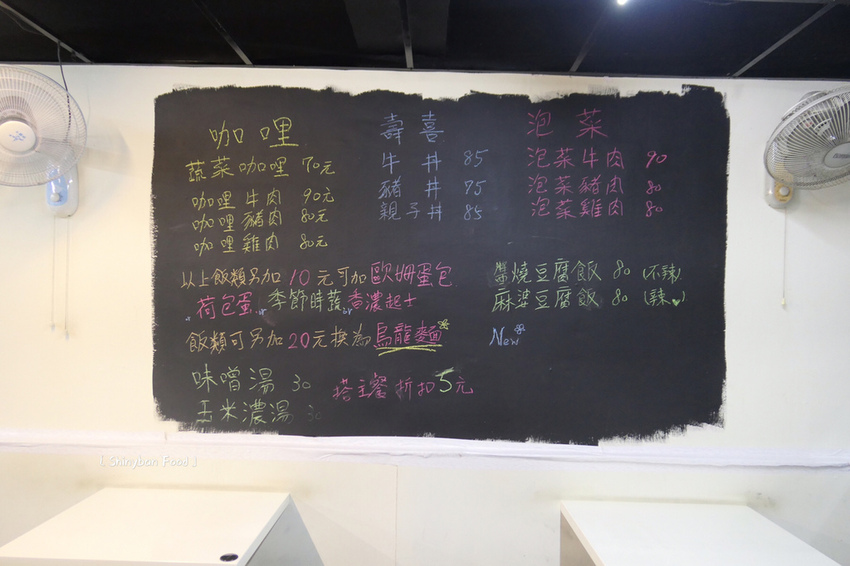 咖哩
蔬菜咖哩 70元
咖哩牛肉 90元
咖哩豬肉 80元
咖哩雞肉 80元
壽喜
牛丼 85
豬丼 75
親子丼 85
泡菜
泡菜牛肉 90
泡菜豬肉 80
泡菜雞肉 80
以上飯類另加10元可加歐姆蛋包
荷包蛋 or 季節時蔬 or 香濃起士
飯類可另加20元換為烏龍麵
醬燒豆腐飯 80 (不辣)
麻婆豆腐飯 80 (辣)
New
味噌湯 30
玉米濃湯 30
搭主餐折扣5元
[ Shinyban Food ]